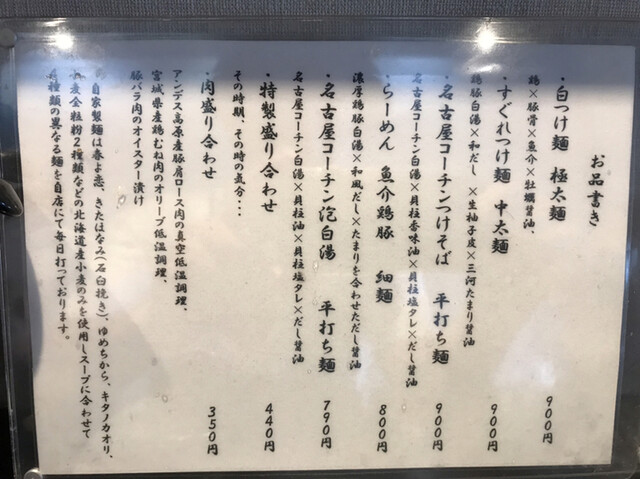 お品書き
・白つけ麺　極太麺　900円
鶏×豚骨×魚介×牡蠣醤油、
・すぐれつけ麺　中太麺　900円
鶏豚白湯×和だし　×生柚子皮×三河たまり醤油
・名古屋コーチンつけそば　平打ち麺　900円
名古屋コーチン白湯×貝柱香味油×貝柱塩タレ×だし醤油
・らーめん　魚介鶏豚　細麺　800円
濃厚鶏豚白湯×和風だし×たまりを合わせただし醤油
・名古屋コーチン泡白湯　平打ち麺　790円
名古屋コーチン白湯×貝柱油×貝柱塩タレ×だし醤油
・特製盛り合わせ　440円
その時期、その時の気分・・・
・肉盛り合わせ　350円
アンデス高原産豚肩ロース肉の真空低温調理、
宮城県産鶏むね肉のオリーブ低温調理、
豚バラ肉のオイスター漬け
自家製麺は春よ恋、きたほなみ(石臼挽き)、ゆめちから、キタノカオリ、
麦全粒粉２種類などの北海道産小麦のみを使用しスープに合わせて
種類の異なる麺を自店にて毎日打っております。